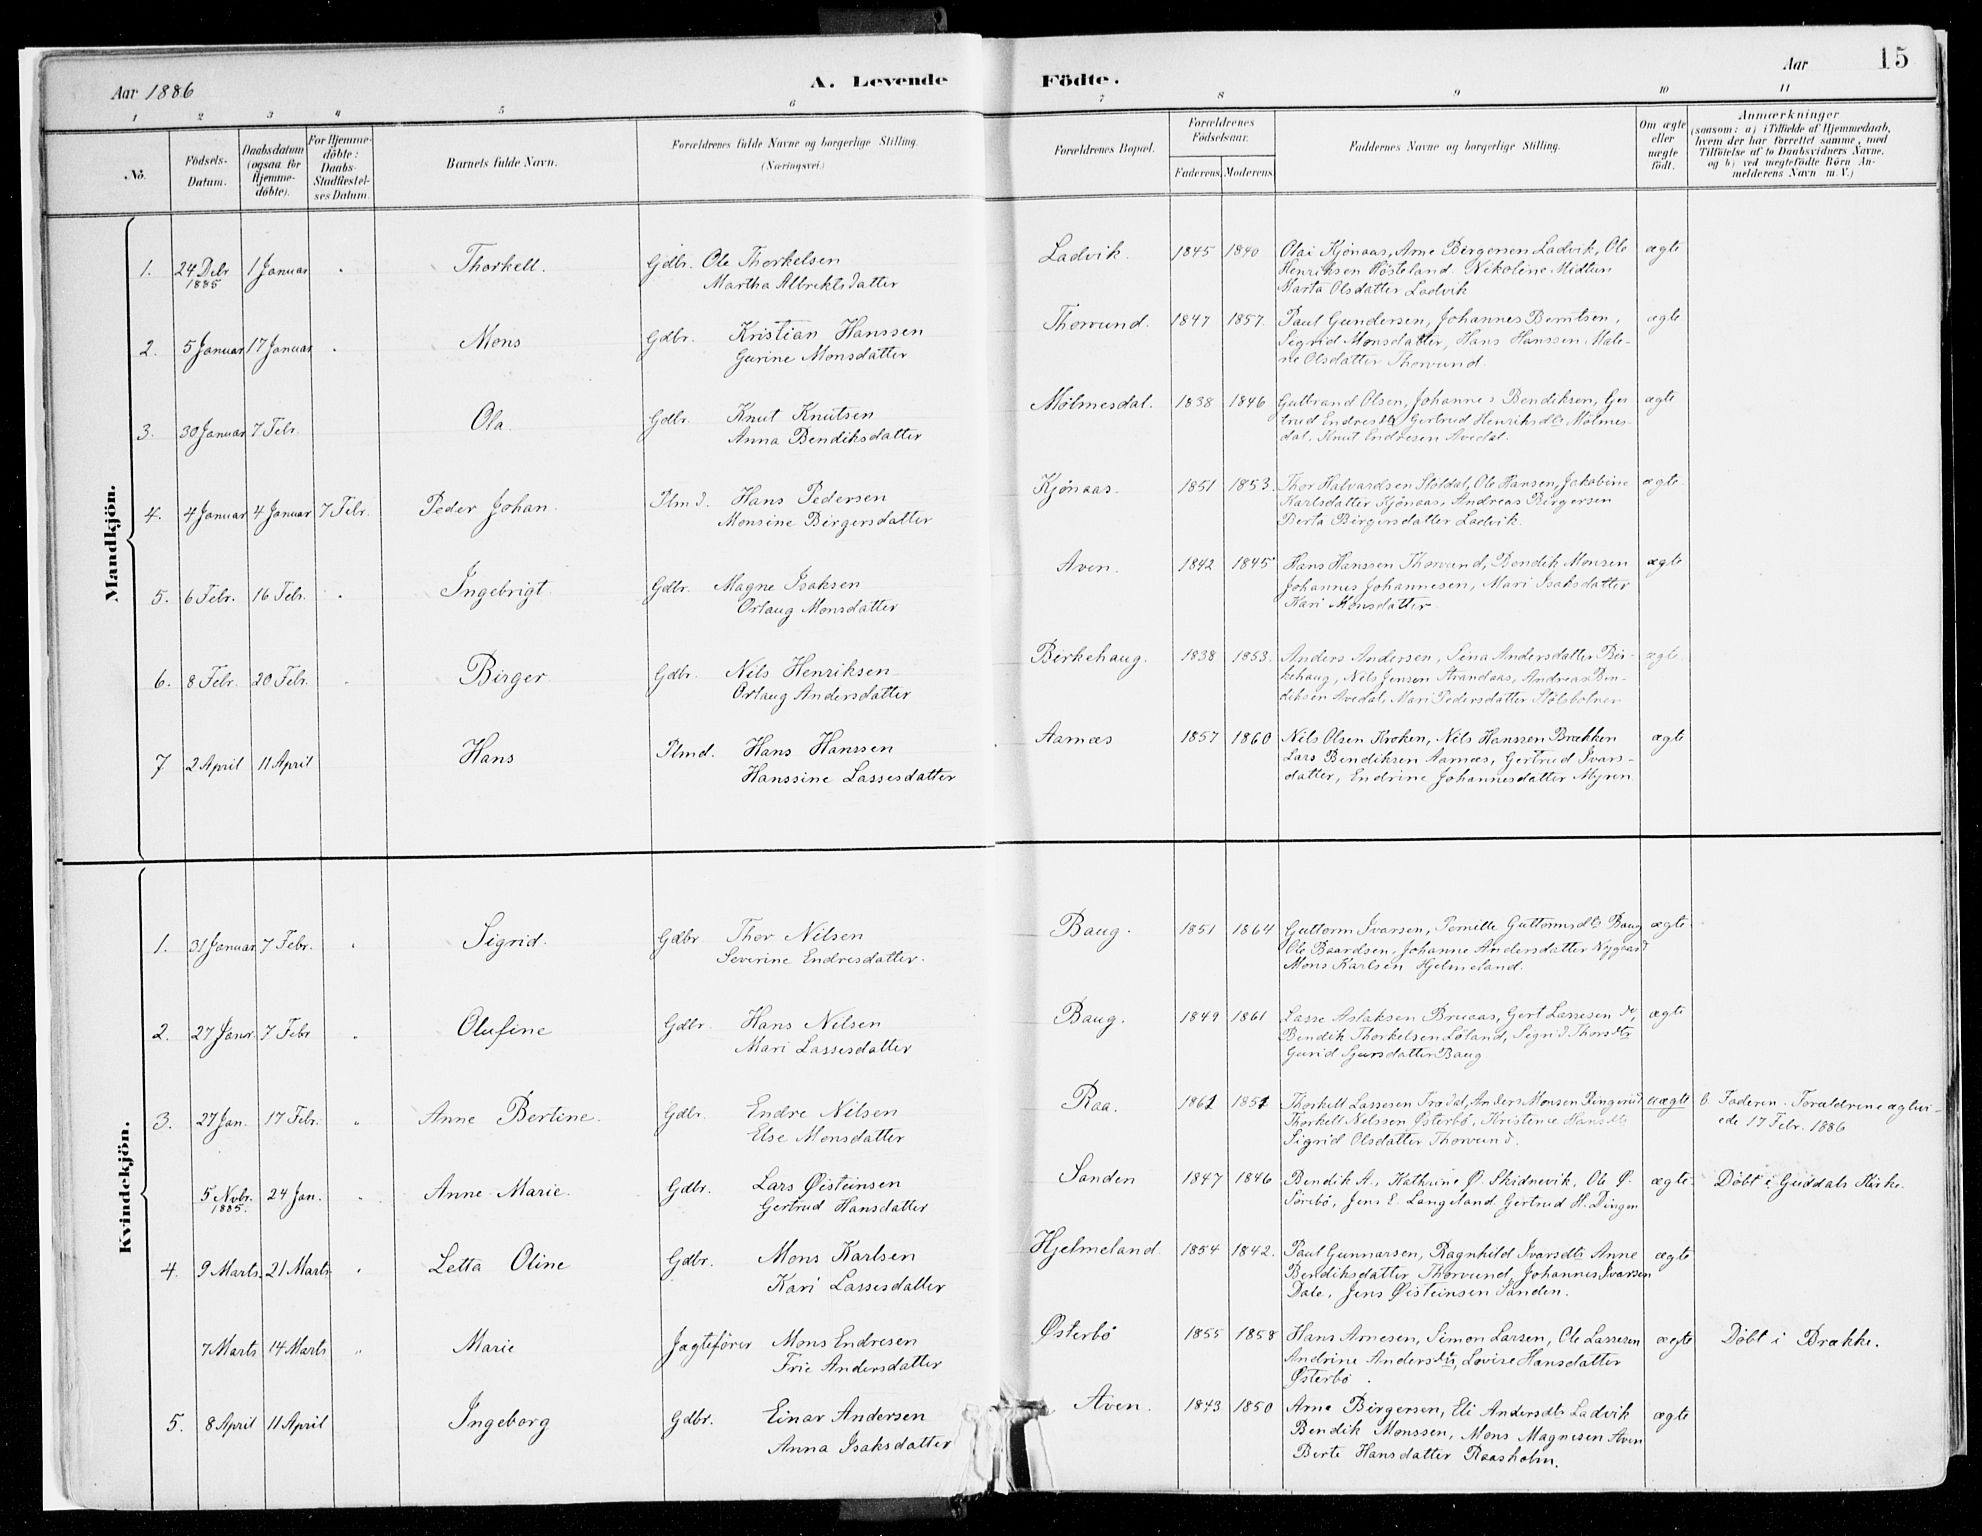 Aar 1886
A. Levende Födte.
Aar
15
1 2 3 4 5 6 7 8 9 10 11
No.
Födsels-Datum.
Daabsdatum (ogsaa for Hjemmedöbte).
For Hjemmedöbte: Daabs-Stadfestelses Datum.
Barnets fulde Navn.
Forældrenes fulde Navne og borgerlige Stilling. (Næringsvei.)
Forældrenes Bopæl.
Forældrenes Födselsaar.
Faderens. Moderens.
Faddernes Navne og borgerlige Stilling.
Om ægte eller uægte födt.
Anmærkninger
(saasom: a) i Tilfælde af Hjemmedaab, hvem der har forrettet samme, med Tilföielse af to Daabsvidners Navne, og b) ved uegtefödte Börn Anmelderens Navn m. V.)
Mandkjön.
1. 24 Debr 1885 1 Januar Thorkell. Gdbr. Ole Thorkelsen
Martha Albriktsdatter
Ladvik. 1845 1840 Olai Kjönaas, Arne Birgersen Ladvik, Ole
Henriksen Høsteland. Nikoline Midtun
Marta Olsdatter Ladvik
ægte
2. 5 Januar 17 Januar Mons Gdbr. Kristian Hanssen
Gurine Monsdatter
Thorvund. 1847 1857. Paul Gundersen, Johannes Berntsen,
Sigrid Monsdatter, Hans Hanssen, Male-
ne Olsdatter Thorvund.
ægte
3. 30 Januar 7 Febr. Ola. Gdbr. Knut Knutsen
Anna Bendiksdatter
Mölmesdal. 1838 1846 Guttrand Olsen, Johannes Bendiksen, Ger
trud Endresdtr Gertrud Henriksdtr Mölmes-
dal, Knut Endresen Avedal.
ægte
4. 4 Januar 4 Januar 7 Febr. Peder Johan. Plmd. Hans Pedersen
Monsine Birgersdatter
Kjönaas. 1851 1853. Thor Halvardsen Stöldal, Ole Hansen, Jakobine
Karlsdatter Kjönaas, Andreas Birgersen
Berta Birgersdatter Ladvik.
ægte.
5. 6 Febr. 16 Febr. Ingebrigt. Gdbr. Magne Isaksen
Orlaug Monsdatter
Aven. 1842 1845 Hans Hanssen Thorvund, Bendik Monsen
Johannes Johannesen, Mari Isaksdatter
Kari Monsdatter.
ægte
6. 8 Febr. 20 Febr. Birger Gdbr. Nils Henriksen
Orlaug Andersdatter
Birkehaug. 1838 1853. Anders Andersen, Sina Andersdatter Bir-
kehaug, Nils Jensen Strandaas, Andreas Ben-
diksen Avedal, Mari Pedersdatter Stölsbotner
ægte.
7 2 April 11 April Hans Plmd. Hans Hanssen
Hanssine Lassesdatter
Aarnæs 1857 1860 Nils Olsen Kroken, Nils Hanssen Brækken
Lars Bendiksen Aarnæs, Gertrud Ivars-
datter, Endrine Johannesdatter Myren
ægte
Kvindekjön.
1. 31 Januar 7 Febr. Sigrid. Gdbr Thor Nilsen
Severine Endresdatter.
Baug. 1851 1864 Guttorm Ivarsen, Pernille Guttormsdtr Baug
Ole Baardsen, Johanne Andersdatter Nygaard
Mons Karlsen Hjelmeland.
ægte
2. 27 Janr. 7 Febr Olufine Gdbr. Hans Nilsen
Mari Lassesdatter
Baug. 1849 1861 Lasse Aslaksen Bruaas, Gert Lassesen do,
Bendik Thorkelsen Löland, Sigrid Thorsdtr
Gurid Sjursdatter Baug
ægte
3. 27 Jan. 17 Febr. Anne Bertine. Gdbr. Endre Nilsen
Else Monsdatter
Raa. 1861 1851 Thorkell Lassesen Trædal, Anders Monsen Ringerud
Thorkell Nilssen Østerbö, Kristense Hansdtr
Sigrid Olsdatter Thorvund.
uægte b. Faderen. Forældrene ægtevi-
ede 17 Febr. 1886
5 Nvbr. 1885. 24 Jan. Anne Marie. Gdbr. Lars Øisteinsen
Gertrud Hansdatter
Sanden 1847 1846 Bendik A., Kathrine Ø. Skidnevik, Ole Ø.
Sörebö, Jens E. Langeland Gertrud H. Dingen
ægte. Döbt i Guddals Kirke.
4. 9 Marts. 21 Marts Letta Oline Gdbr. Mons Karlsen
Kari Lassesdatter
Hjelmeland. 1854 1842. Paul Gunnarsen, Ragnhild Ivarsdtr Anne
Bendiksdatter Thorvund, Johannes Ivarsen
Dale, Jens Øisteinsen Sanden.
ægte
7 Marts 14 Marts Marie Jagtefører Mons Endresen
Frie Andersdatter
Østerbö 1855 1858 Hans Arnesen, Simon Larsen, Ole Lassesen
Andrine Andersdtr, Lovise Hansdatter
Østerbö.
ægte Döbt i Brække.
5. 8 April 11 April Ingeborg Gdbr. Einar Andersen
Anna Isaksdatter
Aven. 1843 1850 Arne Birgersen, Eli Andersdtr Ladvik
Bendik Monssen, Mons Magnesen Aven
Berte Hansdatter Raasholm.
ægte